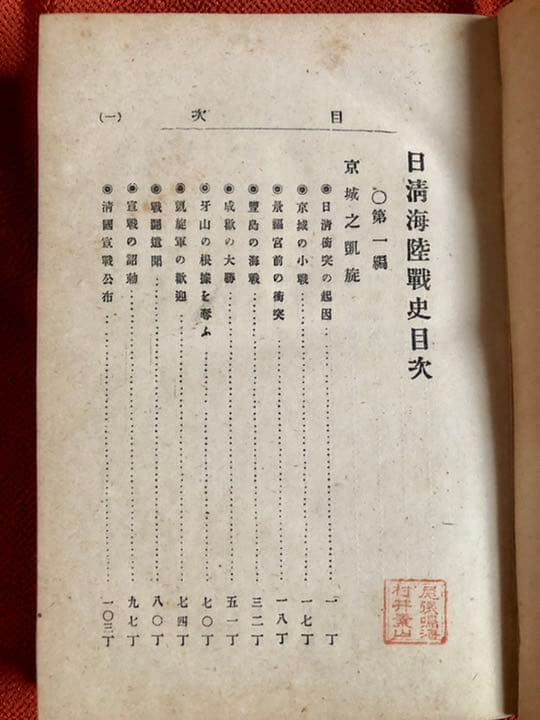 目次
(一)
日淸海陸戰史目次
〇第一編
京城之凱旋
◉日淸衝突の起因……一丁
◉京城の小戰……一七丁
◉景福宮前の衝突……一八丁
◉豐島の海戰……三二丁
◉成歡の大勝……五一丁
◉牙山の根據を奪ふ……七〇丁
◉凱旋軍の歡迎……七四丁
◉戰鬪遺聞……八〇丁
◉宣戰の詔勅……九七丁
◉淸國宣戰公布……一〇三丁
尾張鳴海
村井